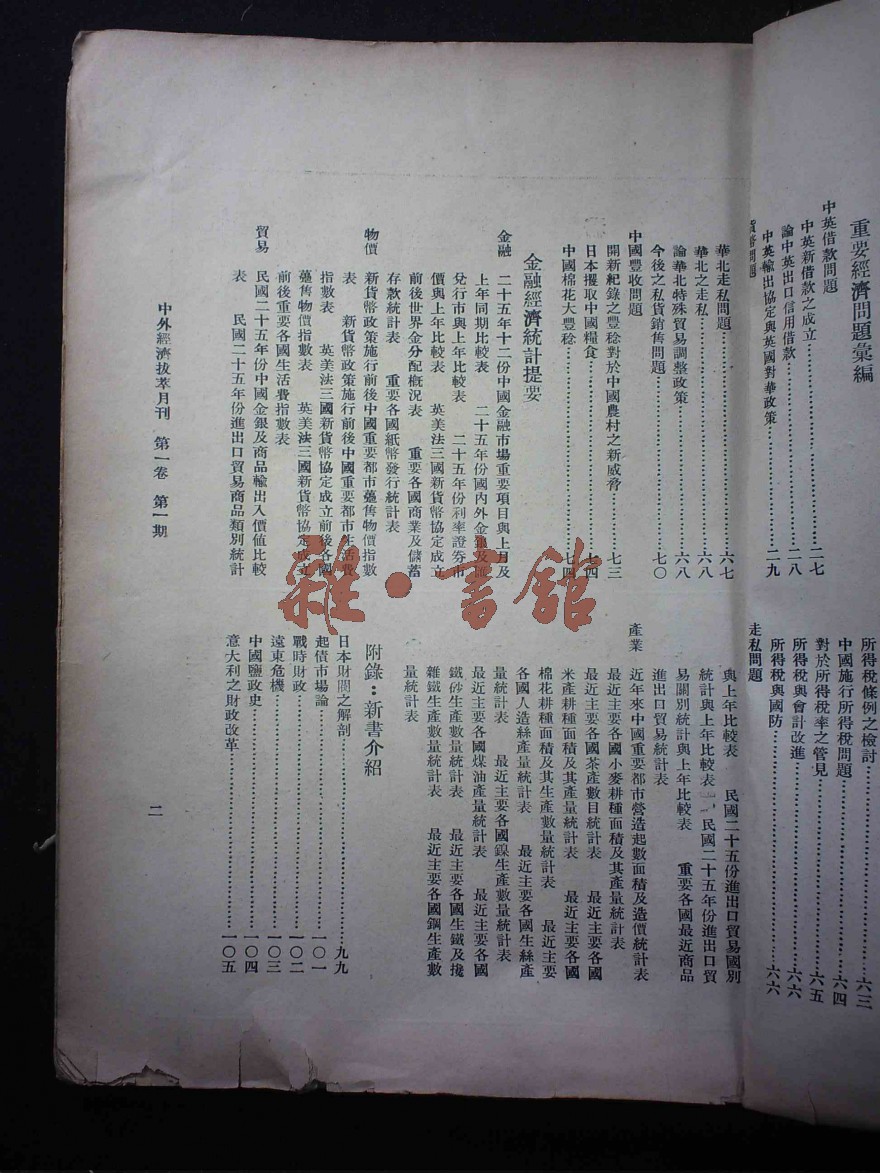 重要經濟問題彙編
中英借款問題
中英新借款之成立……二七
論中英出口信用借款……二八
中英輸出協定與英國對華政策……二九
貨幣問題
所得稅條例之檢討……六三
中國施行所得稅問題……六四
對於所得稅率之管見……六五
所得稅與會計改進……六六
所得稅與國防……六六
走私問題
華北走私問題……六七
華北之走私……六八
論華北特殊貿易調整政策……六八
今後之私貨銷售問題……七〇
中國豐收問題
開新紀錄之豐稔對於中國農村之新威脅……七三
日本攫取中國糧食……七四
中國棉花大豐稔……七四
金融經濟統計提要
金融 二十五年十二份中國金融市場重要項目與上月及
上年同期比較表 二十五年份國內外金銀及匯
兌行市與上年比較表 二十五年份利率證券市
價與上年比較表 英美法三國新貨幣協定成立
前後世界金分配概況表 重要各國商業及儲蓄
存款統計表 重要各國紙幣發行統計表
物價 新貨幣政策施行前後中國重要都市躉售物價指數
表 新貨幣政策施行前後中國重要都市生活費
指數表 英美法三國新貨幣協定成立前後各國
躉售物價指數表 英美法三國新貨幣協定成立
前後重要各國生活費指數表
貿易 民國二十五年份中國金銀及商品輸出入價值比較
表 民國二十五年份進出口貿易商品類別統計
與上年比較表 民國二十五份進出口貿易國別
統計與上年比較表 民國二十五年份進出口貿
易關別統計與上年比較表 重要各國最近商品
進出口貿易統計表
產業 近年來中國重要都市營造起數面積及造價統計表
最近主要各國小麥耕種面積及其產量統計表
最近主要各國茶產數目統計表 最近主要各國
米產耕種面積及其產量統計表 最近主要各國
棉花耕種面積及其生產數量統計表 最近主要
各國人造絲產量統計表 最近主要各國生絲產
量統計表 最近主要各國鎳生產數量統計表
最近主要各國煤油產量統計表 最近主要各國
鐵砂生產數量統計表 最近主要各國生鐵及攙
雜鐵生產數量統計表 最近主要各國鋼生產數
量統計表
附錄：新書介紹
日本財閥之解剖……九九
起債市場論……一〇一
戰時財政……一〇二
遠東危機……一〇三
中國鹽政史……一〇四
意大利之財政改革……一〇五
中外經濟拔萃月刊 第一卷 第一期
二
雜·書館